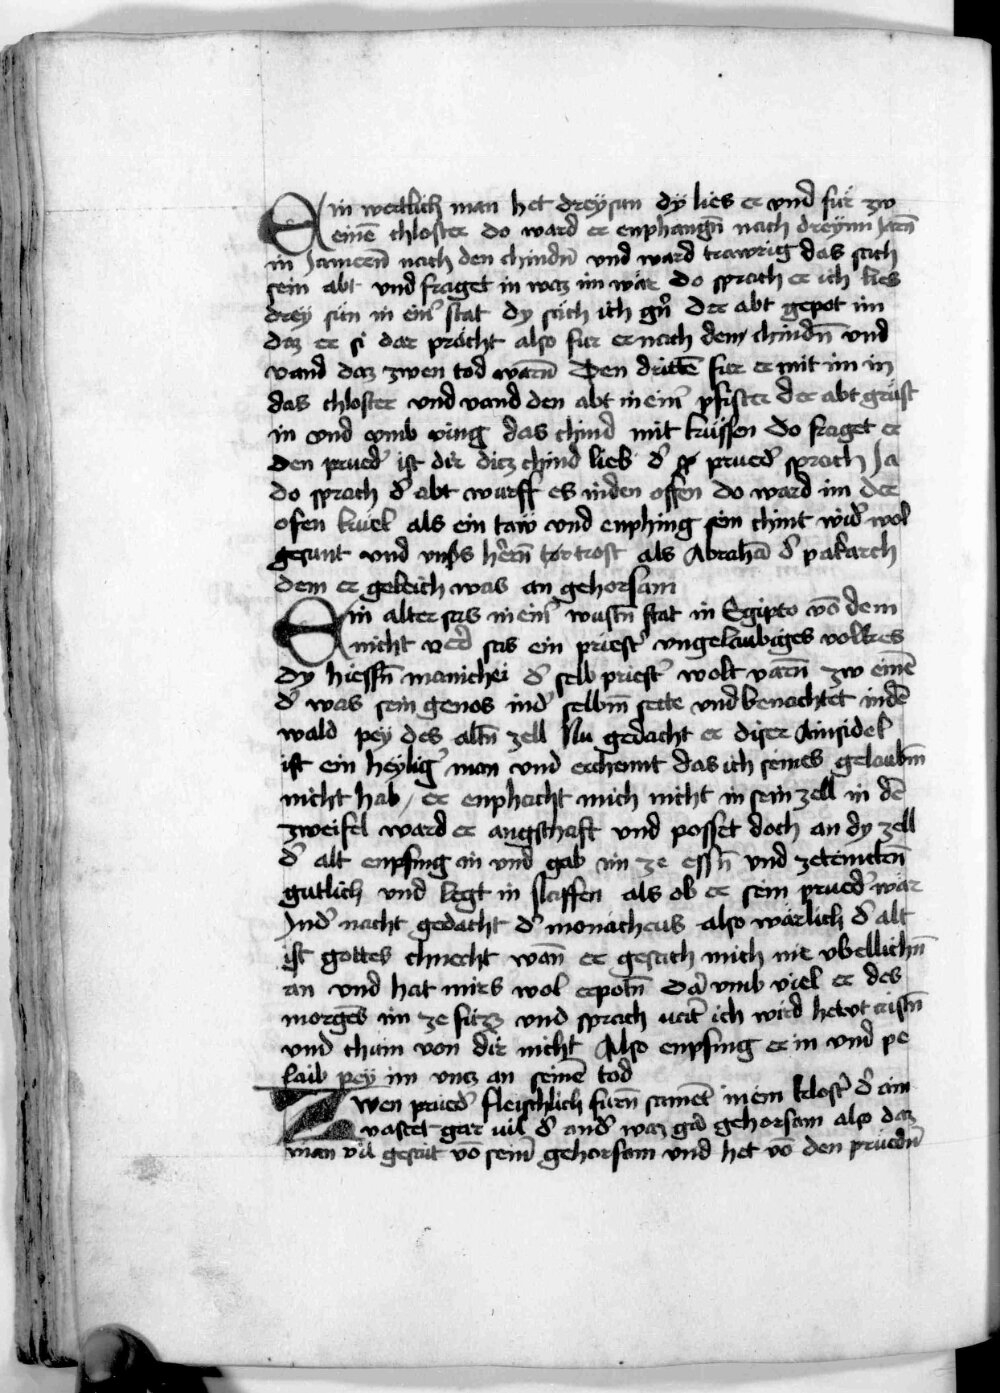 Ein werltlich man het drey sun dy lies er vnd fur zw
einē chloster do ward er enphangn̄ nach dreyn̄ Jarn̄
in Jamern̄ nach den chindn̄ vnd ward trawrig das sach
sein abt vnd fraget in waz im wär do sprach er ich lies
drey sün in ein̄ stat dy säch ich gn̄ der abt gepot im
daz er si dar prächt also fur er nach dem chindn̄ vnd
vand daz zwen tod warn̄ Den drittē fur er mit im in
das chloster vnd vand den abt in ein̄ pfister der abt grüst
in vnd vmb ving das chind mit küssen do fraget er
den prued' ist dir ditz chind lieb d' prued' sprach Ja
do sprach d' abt wurff es in den offen do ward im der
ofen kuel als ein taw vnd enphing sein chint wid' wol
gesunt vnd vnss hern̄ trost als Abrahā d' patarch
dem er geleich was an gehorsam
Ein alter sas in ein̄ wustn̄ stat in Egipto vō dem
nicht verr sas ein priest' vngelaubiges volkes
dy hiessn̄ manichei d' selb priest' wolt varn̄ zw einē
d' was sein genos in d' selbm̄ secte vnd benachtet in dē
wald pey des altn̄ zell Nu gedacht er diser Ainsidel
ist ein heylig' man vnd erchennt das ich seines gelaubm̄
nicht hab / er enphacht mich nicht in sein zell in dē
zweifel ward er angsthaft vnd posset doch an dy zell
d' alt enpfing in vnd gab im ze essn̄ vnd ze trinckn̄
gutlich vnd legt in slaffen als ob er sein prued' wär
In d' nacht gedacht d' monacheus also wärlich d' alt
ist gottes chnecht wan̄ er gesach mich nie vbellichn̄
an vnd hat mirs wol erpotn̄ Dar vmb viel er des
morgēs im ze füzz vnd sprach uat' ich wird hewt cristn̄
vnd chum von dir nicht Also enpfing er in vnd pe
laib pey im vntz an seinē tod
Zwen prued' fleischlich furn̄ samēt in ein kloster d' ain
vastet gar uil d' and' waz gar gehorsam also daz
man vil gesait vō sein̄ gehorsam vnd het vō den pruedn̄